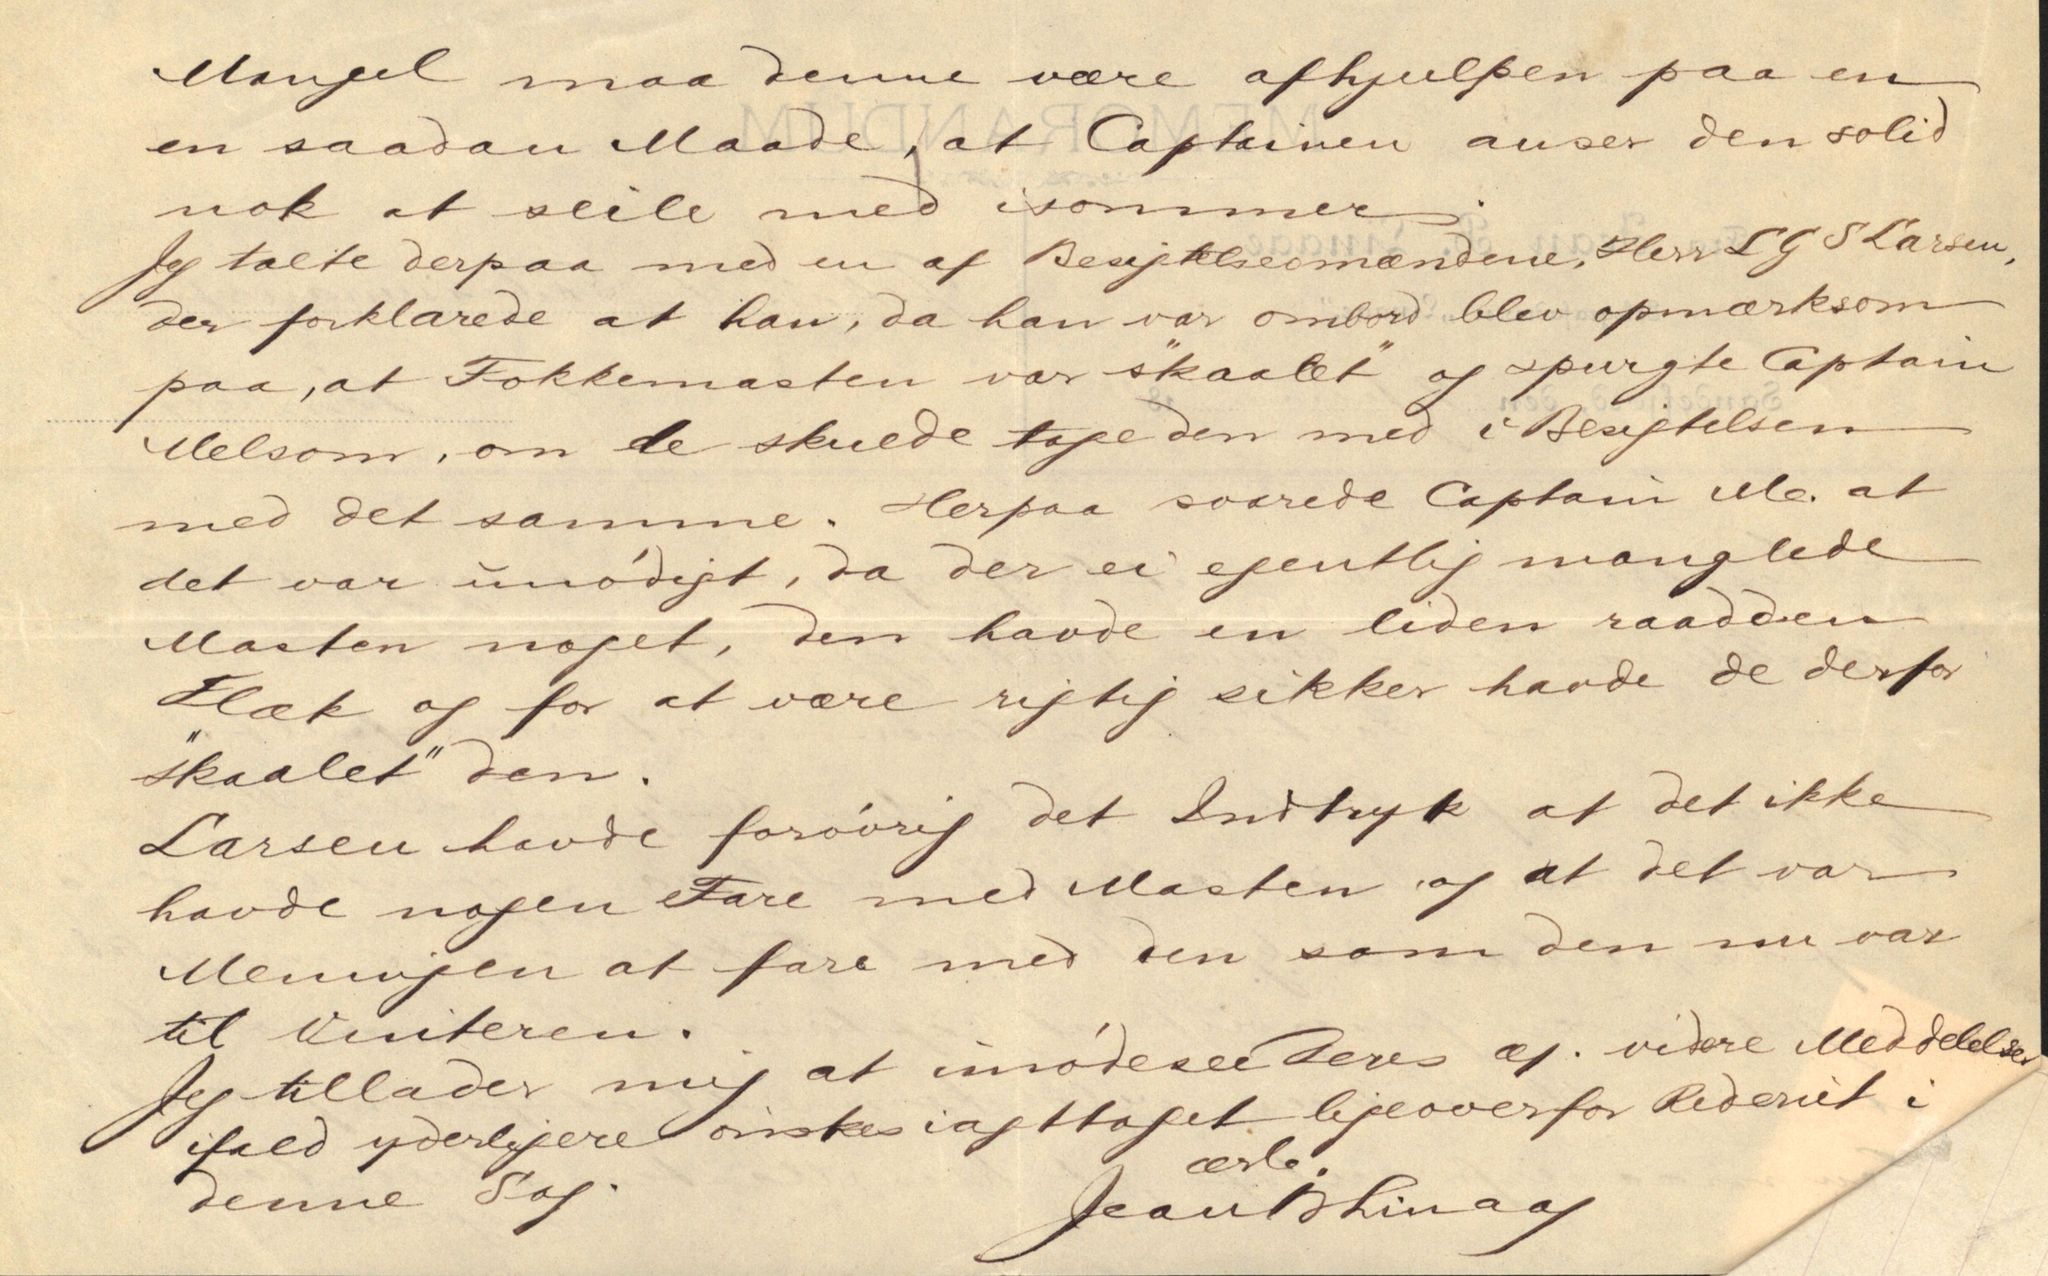 Mangel maa denne være afhjulpen paa en
en saadan Maade, at Captainen anser den solid
nok at seile med isommer.
Jeg talte derpaa med en af Besigtelsesmændene, Herr L G S Larsen,
der forklarede at han, da han var ombord blev opmærksom
paa, at Fokkemasten var "skaalet" og spurgte Captain
Melsom, om de skulde tage den med i Besigtelsen
med det samme. Herpaa svarede Captain Me. at
det var unödigt, da der ei egentlig manglede
Masten noget, den havde en liden raadden
Flæk og for at være rigtig sikker havde de derfor
"skaalet" den.
Larsen havde forövrig det Indtryk at det ikke
havde nogen Fare med Masten og at det var
Meningen at fare med den som den nu var
til Vinteren.
Jeg tillader mig at imödesee Deres æ. videre Meddelelser
ifald yderligere önskes iagttaget ligeoverfor Rederiet i
denne Sag.
ærb.
Jean B Linaae
MEMORANDUM
Sandefjord, den 18